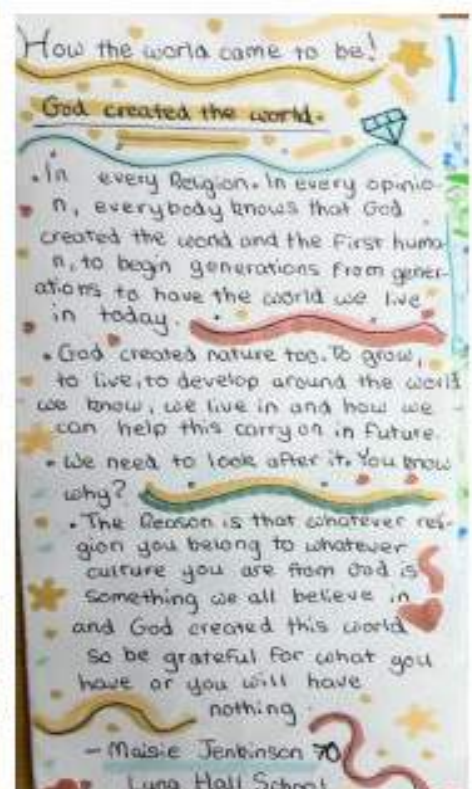 How the world came to be!
God created the world.
• In every Religion. In every opinio-
n, everybody knows that God
created the world and the First huma-
n, to begin generations from gener-
ations to have the world we live
in today.
• God created nature too. To grow,
to live, to develop around the world
we know, we live in and how we
can help this carry on in future.
• We need to look after it. You know
why?
• The Reason is that whatever reli-
gion you belong to whatever
culture you are from God is
something we all believe in
and God created this world
so be grateful for what you
have or you will have
nothing.
- Maisie Jenkinson
Hall School